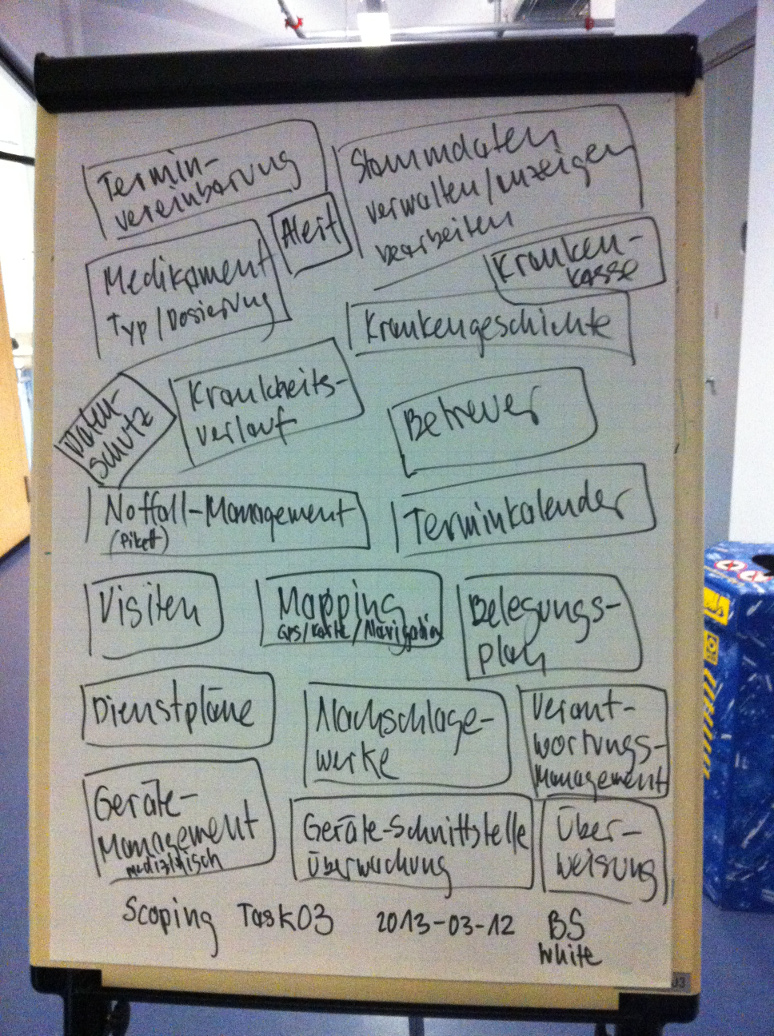 Termin-
vereinbarung
Alert
Stammdaten
verwalten/anzeigen
bearbeiten
Kranken-
kasse
Medikament
Typ/Dosierung
Krankengeschichte
Daten-
schutz
Krankheits-
verlauf
Betreuer
Notfall-Management
(Pikett)
Terminkalender
Visiten
Mapping
GPS/Karte/Navigation
Belegungs-
plan
Dienstpläne
Nachschlage-
werke
Verant-
wortungs-
Management
Geräte-
Management
medizinisch
Geräte-Schnittstelle
Überwachung
Über-
weisung
Scoping Task03 2013-03-12 BS
White
03